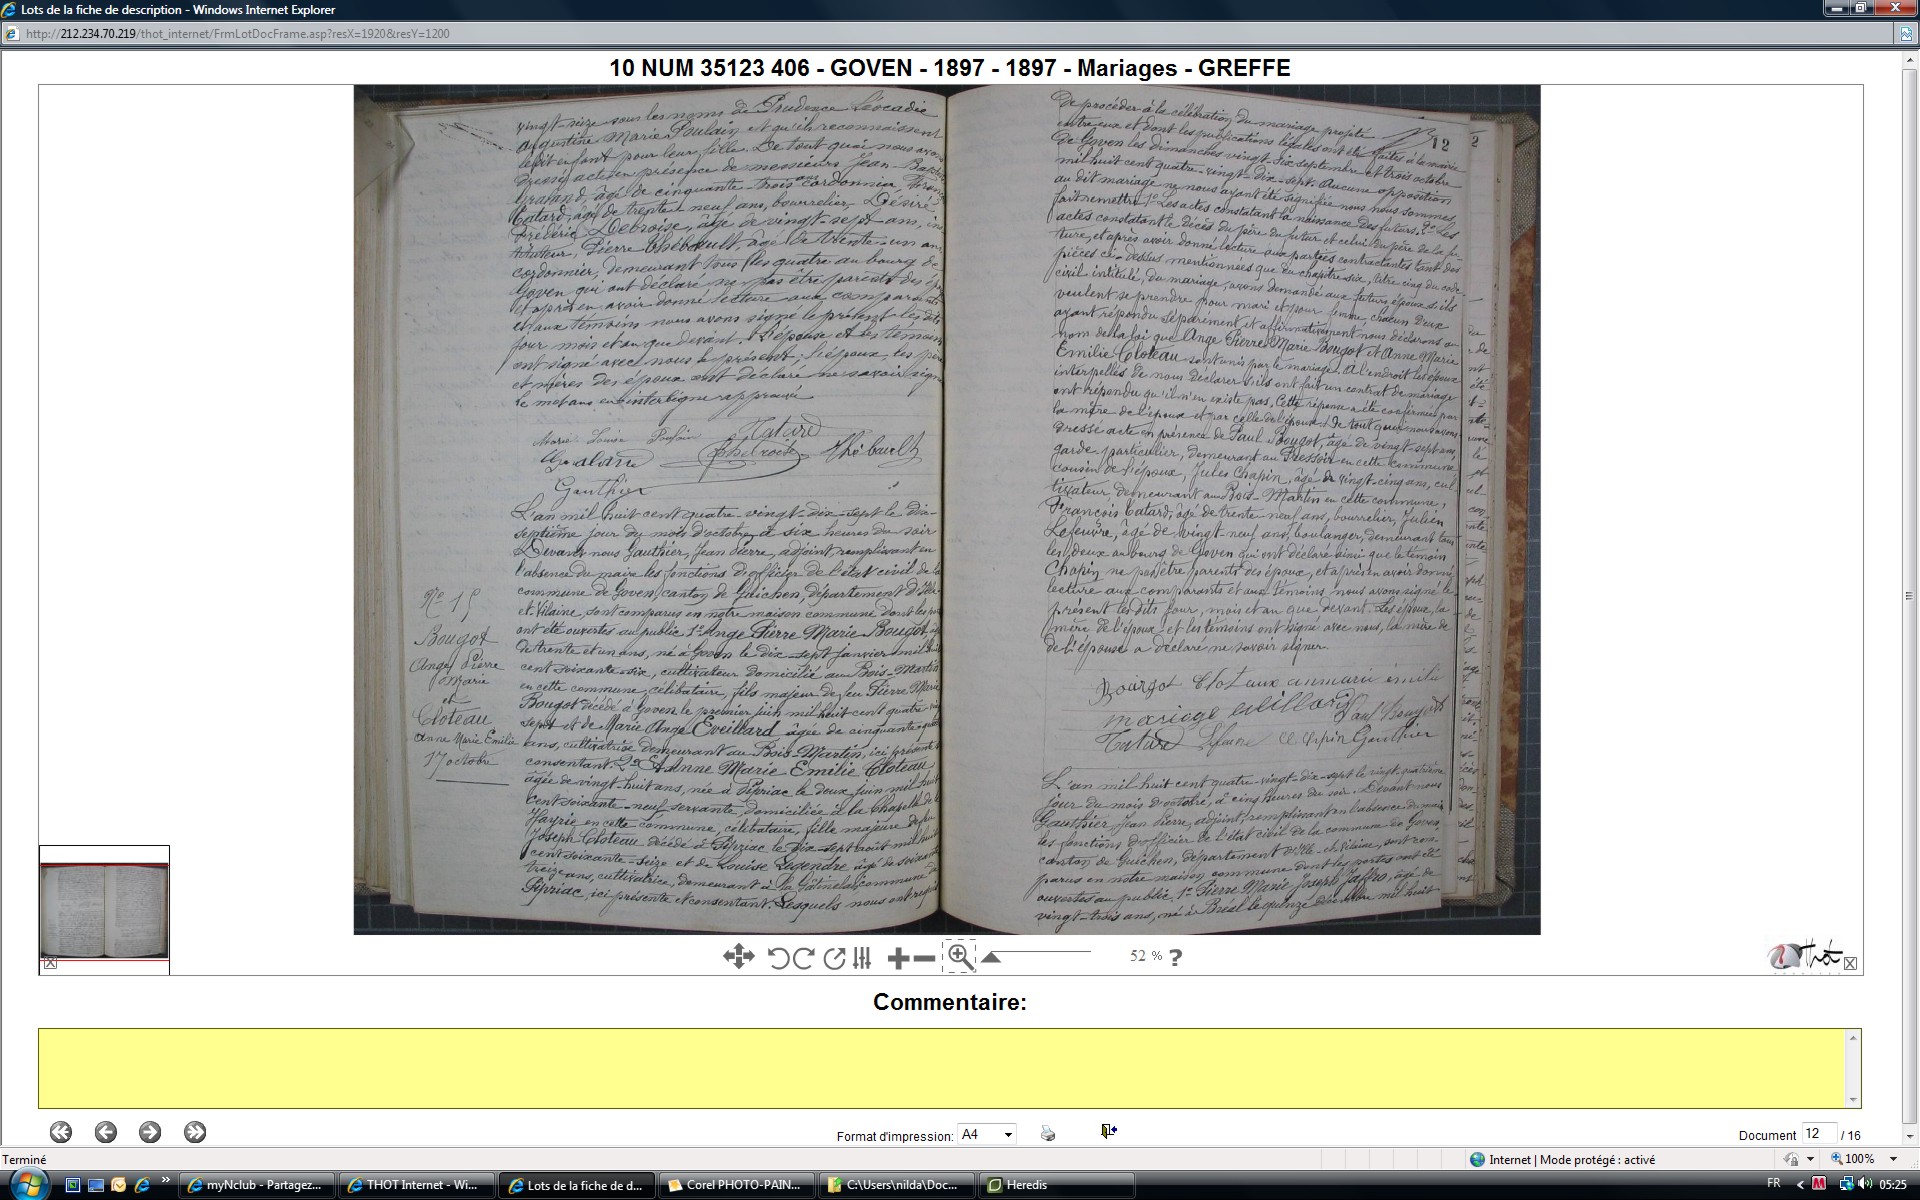 Lots de la fiche de description - Windows Internet Explorer
http://212.234.70.219/thot_internet/FrmLotDocFrame.asp?resX=1920&resY=1200
10 NUM 35123 406 - GOVEN - 1897 - 1897 - Mariages - GREFFE
vingt-seize sous les noms de Prudence Léocadie
Augustine Marie Poulain et qu'ils reconnaissent
le dit enfant pour leur fille. De tout quoi nous avons
dressé acte en présence de messieurs Jean-
âgé de cinquante-trois ans cordonnier,
Tatard, âgé de trente neuf ans, bourrelier, Désiré
Frédéric Debroise, âgé de vingt-sept ans, ins
tituteur, Pierre Thébault, âgé de trente-un ans
cordonnier, demeurant tous les quatre au bourg de
Goven qui ont déclaré ne pas être parents des
et après en avoir donné lecture aux comparants
et aux témoins nous avons signé le présent les dits
jour mois et an que devant. L'épouse et les témoins
ont signé avec nous le présent; l'époux, les père
et mères des époux ont déclaré ne savoir signer
le mot ans en interligne approuvé
Marie Louise Poulain Tatard
Thébault
Gauthier
L'an mil huit cent quatre-vingt-dix-sept le dix-
septième jour du mois d'octobre, à six heures du soir
Devant nous Gauthier, Jean Pierre, adjoint remplissant en
l'absence du maire les fonctions d'officier de l'état civil de la
commune de Goven, canton de Guichen, département d'Ille-
et-Vilaine, sont comparus en notre maison commune dont les
ont été ouvertes au public 1º Ange Pierre Marie Bougot,
de trente et un ans, né à Goven le dix-sept janvier mil huit
cent soixante-six, cultivateur domicilié au Bois-Martin
en cette commune, célibataire, fils majeur de feu Pierre Marie
Bougot décédé à Goven le premier juin mil huit cent quatre
sept et de Marie Ange Eveillard âgée de cinquante-quatre
ans, cultivatrice demeurant au Bois-Martin, ici présente
consentant. 2º Et Anne Marie Emilie Cloteau
âgée de vingt-huit ans, née à Pipriac le deux juin mil huit
cent soixante-neuf, servante, domiciliée à la Chapelle de la
en cette commune, célibataire, fille majeure de feu
Joseph Cloteau décédé à Pipriac le dix-sept août mil huit
cent soixante-seize et de Louise Legendre âgée de soixante
treize ans, cultivatrice, demeurant à commune de
Pipriac, ici présente et consentant. Lesquels nous ont requis
Nº 15
Bougot
Ange Pierre
Marie
et
Cloteau
Anne Marie Emilie
17 octobre
12
de procéder à la célébration du mariage projeté
entre eux et dont les publications légales ont été faites à la mairie
de Goven les dimanches vingt-six septembre et trois octobre
mil huit cent quatre-vingt-dix-sept. Aucune opposition
au dit mariage ne nous ayant été signifiée nous nous sommes
fait remettre 1º Les actes constatant la naissance des futurs. 2º Les
actes constatant le décès du père du futur et celui du père de la fu-
ture, et après avoir donné lecture aux parties contractantes tant des
pièces ci-dessus mentionnées que du chapitre six, titre cinq du code
civil intitulé, du mariage, avons demandé aux futurs époux s'ils
veulent se prendre pour mari et pour femme, chacun d'eux
ayant répondu séparément et affirmativement nous déclarons au
nom de la loi que Ange Pierre Marie Bougot et Anne Marie
Emilie Cloteau sont unis par le mariage. A l'endroit les époux
interpellés de nous déclarer s'ils ont fait un contrat de mariage
ont répondu qu'il n'en existe pas. Cette réponse a été confirmée par
la mère de l'époux et par celle de l'épouse. De tout quoi nous avons
dressé acte en présence de Paul Bougot, âgé de vingt-sept ans,
garde particulier, demeurant au Pressoir en cette commune
cousin de l'époux, Jules Chapin, âgé de vingt-cinq ans, cul-
tivateur demeurant au Bois-Martin en cette commune,
François Tatard, âgé de trente neuf ans, bourrelier, Julien
Lefeuvre, âgé de vingt-neuf ans, boulanger, demeurant tous
les deux au bourg de Goven qui ont déclaré ainsi que le témoin
Chapin ne pas être parents des époux, et après en avoir donné
lecture aux comparants et aux témoins nous avons signé le
présent les dits jour, mois et an que devant. Les époux, la
mère de l'époux et les témoins ont signé avec nous, la mère de
de l'épouse a déclaré ne savoir signer.
Bougot Cloteaux annmari émilie
mariage evillard Paul Bougot
Tatard Lefeuvre Gauthier
L'an mil huit cent quatre-vingt-dix-sept le vingt-quatrième
jour du mois d'octobre, à cinq heures du soir. Devant nous
Gauthier Jean Pierre, adjoint, remplissant en l'absence du maire
les fonctions d'officier de l'état civil de la commune de Goven,
canton de Guichen, département d'Ille-et-Vilaine, sont com-
parus en notre maison commune dont les portes ont été
ouvertes au public, 1º Pierre Marie Joseph Jaffro, âgé de
vingt-trois ans, né à Bréal le quinze décembre mil huit
52 % ?
Thot
Commentaire:
Format d'impression: A4
Document 12 / 16
Terminé
Internet | Mode protégé : activé
100%
myNclub - Partagez...
THOT Internet - Wi...
Lots de la fiche de d...
Corel PHOTO-PAIN...
C:\Users\nilda\Doc...
Heredis
FR
05:25